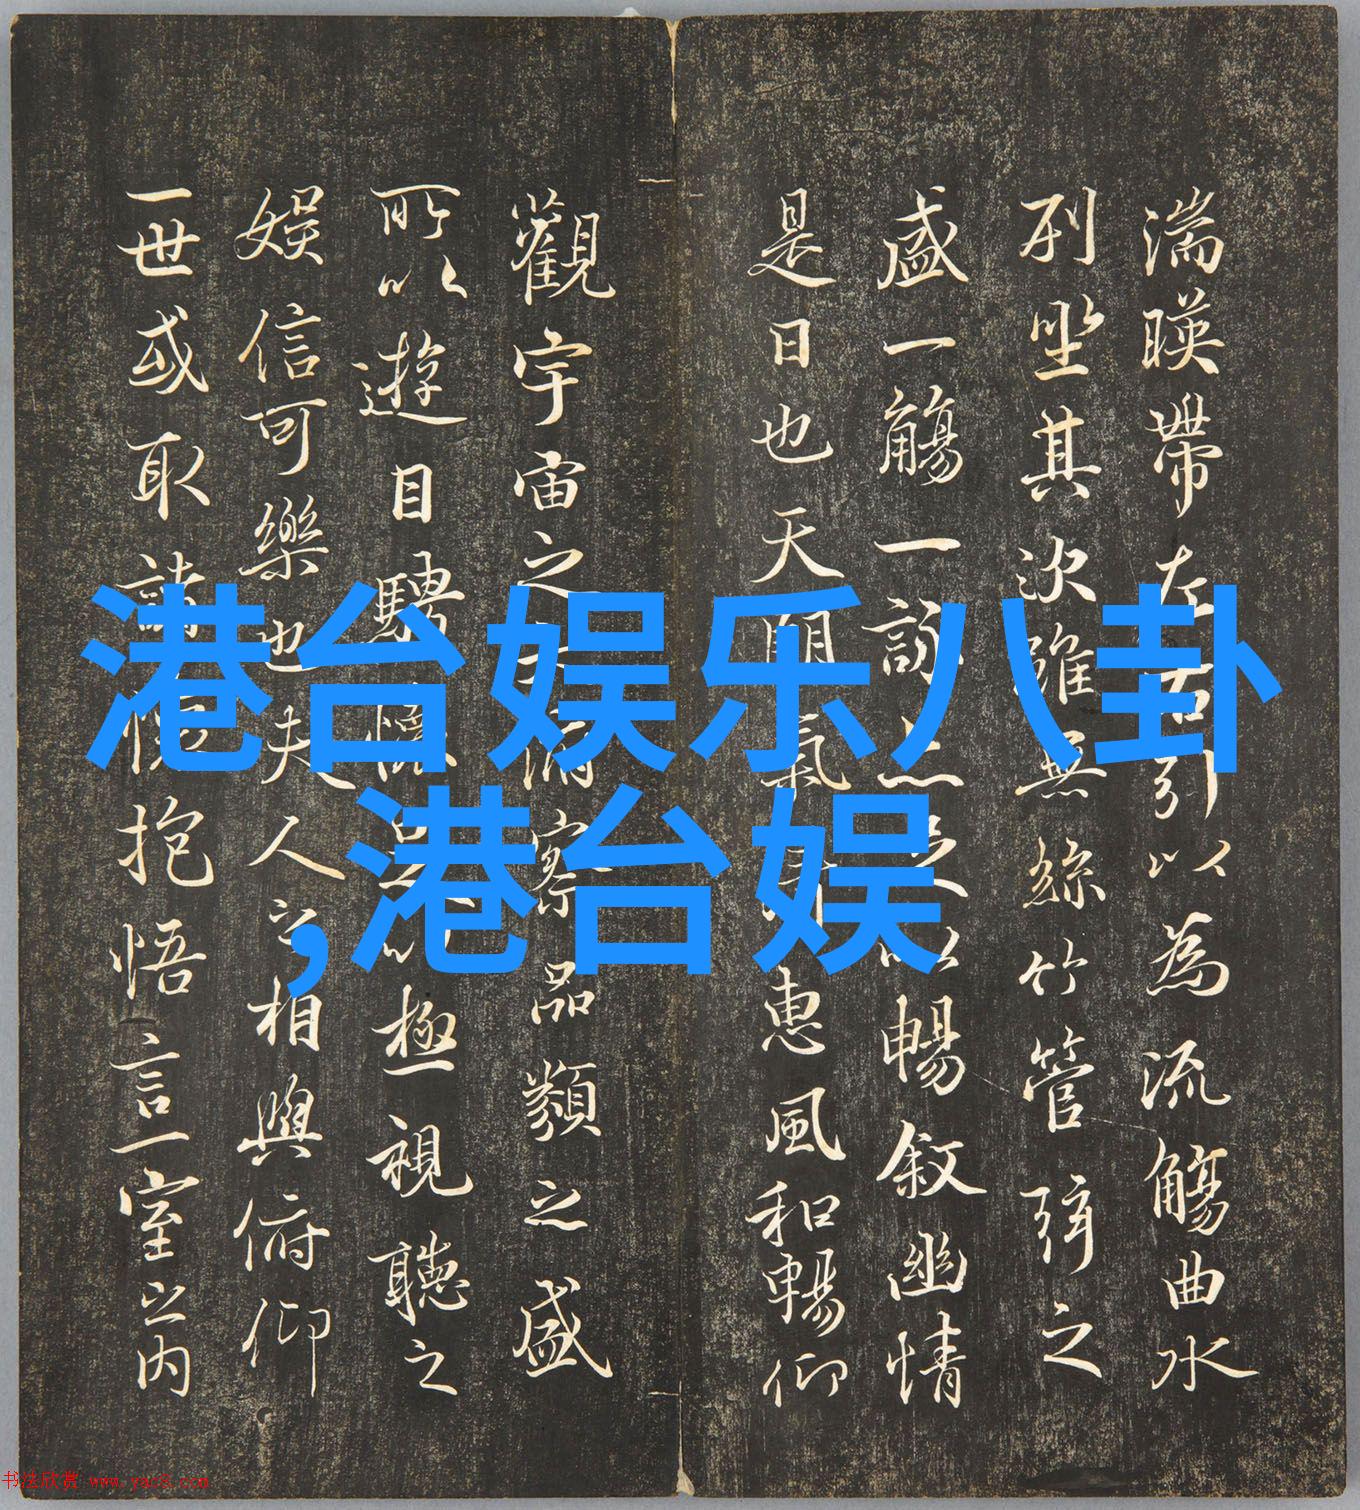 湍暎帶左右引以為流觴曲水
列坐其次雖無絲竹管弦之
盛一觴一詠足以暢敘幽情
是日也天朗氣惠風和暢仰
觀宇宙之大俯察品類之盛
所以遊目騁懷足以極視聽之
娛信可樂也夫人之相與俯仰
一世或取諸懷抱悟言一室之內
港台娱乐八卦
,港台娱
书法欣赏 www.yac8.com